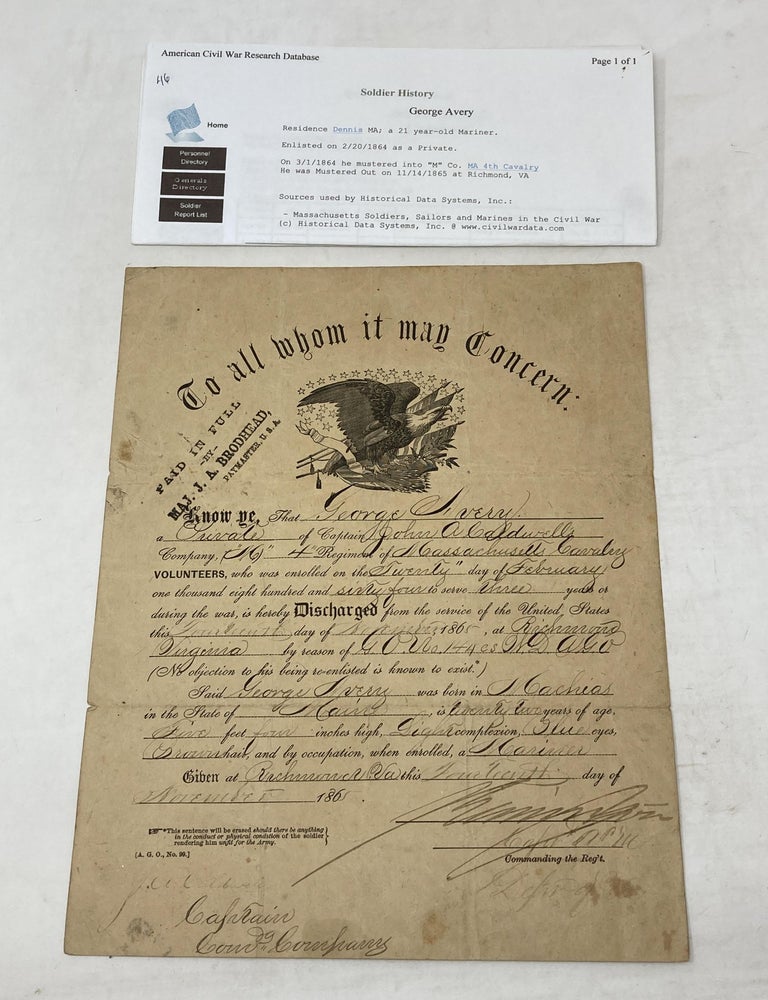 American Civil War Research Database
Page 1 of 1
116
Soldier History
George Avery
Home
Personnel
Directory
Generals
Directory
Soldier
Report List
Residence Dennis MA; a 21 year-old Mariner.
Enlisted on 2/20/1864 as a Private.
On 3/1/1864 he mustered into "M" Co. MA 4th Cavalry
He was Mustered Out on 11/14/1865 at Richmond, VA
Sources used by Historical Data Systems, Inc.:
- Massachusetts Soldiers, Sailors and Marines in the Civil War
(c) Historical Data Systems, Inc. @ www.civilwardata.com
To all whom it may Concern:
PAID IN FULL
-BY-
MAJ. J. A. BRODHEAD,
PAYMASTER, U.S.A.
Know ye, That George Avery
a Private of Captain John A Caldwells
Company, ("M)" 4" Regiment of Massachusetts Cavalry
VOLUNTEERS, who was enrolled on the Twenty" day of February
one thousand eight hundred and sixty four to serve three years or
during the war, is hereby Discharged from the service of the United States
this fourteenth day of November, 1865, at Richmond
Virginia by reason of G O No 144 W.D. A.G.O
(No objection to his being re-enlisted is known to exist.*)
Said George Avery was born in Machias
in the State of Maine, is twenty two years of age,
Five feet four inches high, Light complexion, Blue eyes,
Brown hair, and by occupation, when enrolled, a Mariner
Given at Richmond Va this fourteenth day of
November 1865.
*This sentence will be erased should there be anything
in the conduct or physical condition of the soldier
rendering him unfit for the Army.
[A. G. O., No. 99.]
Commanding the Reg't.
Captain
Comdg Company